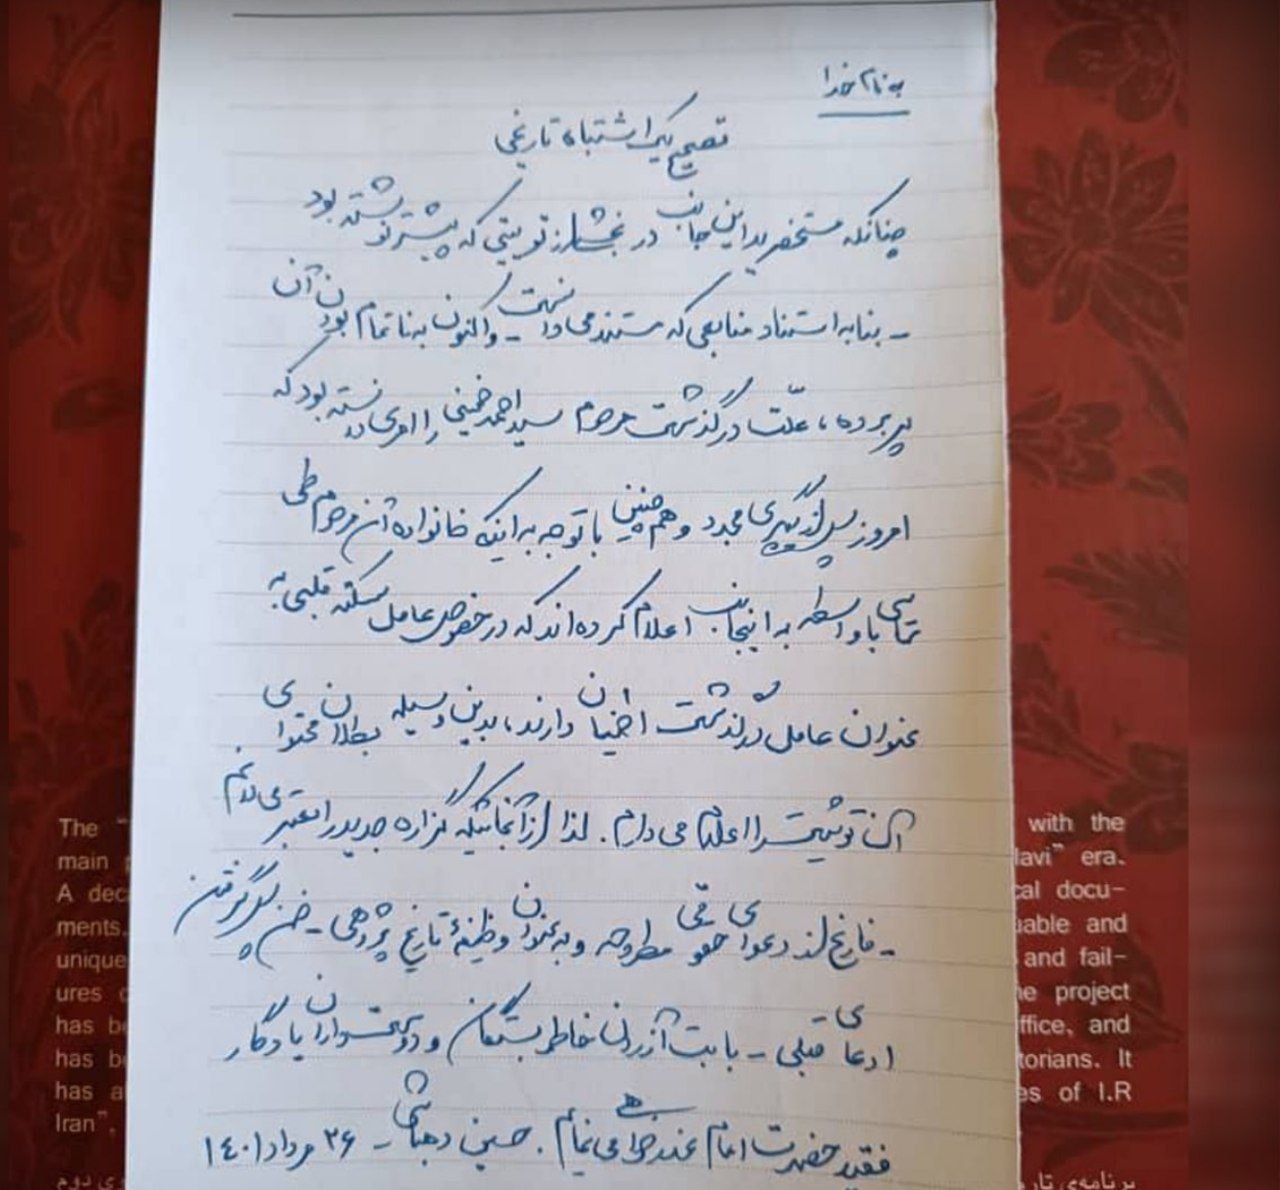 به نام خدا
تصحیح یک اشتباه تاریخی
چنانکه مستحضرید این جانب در بخشی از توییتی که پیشتر نوشته بود
- بنا به استناد منابعی که مستند می دانست - و اکنون به ناتمام بودن آن
پی برده، علّت درگذشت مرحوم سید احمد خمینی را امری دانسته بود که
امروز پس از پیگیری مجدد و هم چنین با توجه به اینکه خانواده آن مرحوم طی
تماسی با واسطه به اینجانب اعلام کرده اند که در خصوص عامل سکته قلبی به
عنوان عامل درگذشت اطمینان دارند، بدین وسیله بطلان محتوای
آن توئیت را اعلام می دارم. لذا از آنجائیکه گزاره جدید را معتبر می دانم
- فارغ از دعوای حقوقی مطروحه و به عنوان وظیفهٔ تاریخ پژوهی - ضمن پس گرفتن
ادعای قبلی - بابت آزردن خاطر بستگان و دوستداران یادگار
فقید حضرت امام عذرخواهی می نمایم. حسین دهباشی - ۲۶ مرداد ۱۴۰۱
The "
main
A dec
ments.
unique
ures
has be
has be
has a
Iran".
with the
lavi" era.
cal docu-
uable and
and fail-
he project
ffice, and
torians. It
es of I.R
ی دوم
برنامه‌ی تار